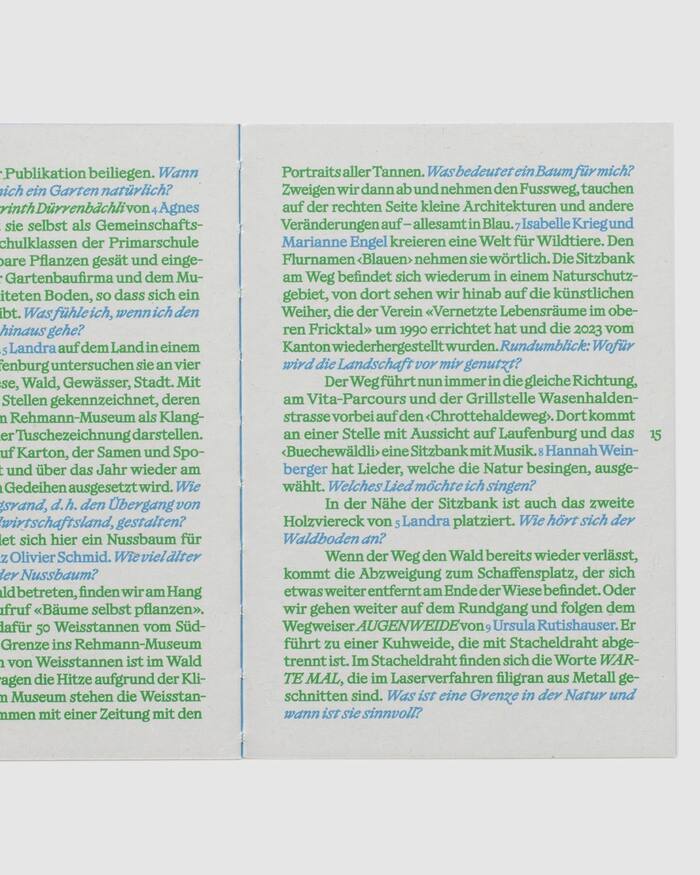 r Publikation beiliegen. Wann
mich ein Garten natürlich?
rinth Dürrenbächli von 4 Agnes
sie selbst als Gemeinschafts-
chulklassen der Primarschule
bare Pflanzen gesät und einge-
r Gartenbaufirma und dem Mu-
iteten Boden, so dass sich ein
ibt. Was fühle ich, wenn ich den
hinaus gehe?
5 Landra auf dem Land in einem
fenburg untersuchen sie an vier
ese, Wald, Gewässer, Stadt. Mit
Stellen gekennzeichnet, deren
m Rehmann-Museum als Klang-
er Tuschezeichnung darstellen.
uf Karton, der Samen und Spo-
t und über das Jahr wieder am
n Gedeihen ausgesetzt wird. Wie
gsrand, d. h. den Übergang von
dwirtschaftsland, gestalten?
det sich hier ein Nussbaum für
z Olivier Schmid. Wie viel älter
der Nussbaum?
ald betreten, finden wir am Hang
ufruf «Bäume selbst pflanzen».
dafür 50 Weisstannen vom Süd-
Grenze ins Rehmann-Museum
n von Weisstannen ist im Wald
ragen die Hitze aufgrund der Kli-
m Museum stehen die Weisstan-
mmen mit einer Zeitung mit den
Portraits aller Tannen. Was bedeutet ein Baum für mich?
Zweigen wir dann ab und nehmen den Fussweg, tauchen
auf der rechten Seite kleine Architekturen und andere
Veränderungen auf – allesamt in Blau. 7 Isabelle Krieg und
Marianne Engel kreieren eine Welt für Wildtiere. Den
Flurnamen ‹Blauen› nehmen sie wörtlich. Die Sitzbank
am Weg befindet sich wiederum in einem Naturschutz-
gebiet, von dort sehen wir hinab auf die künstlichen
Weiher, die der Verein «Vernetzte Lebensräume im obe-
ren Fricktal» um 1990 errichtet hat und die 2023 vom
Kanton wiederhergestellt wurden. Rundumblick: Wofür
wird die Landschaft vor mir genutzt?
Der Weg führt nun immer in die gleiche Richtung,
am Vita-Parcours und der Grillstelle Wasenhalden-
strasse vorbei auf den ‹Chrottehaldeweg›. Dort kommt
an einer Stelle mit Aussicht auf Laufenburg und das
‹Buechewäldli› eine Sitzbank mit Musik. 8 Hannah Wein-
berger hat Lieder, welche die Natur besingen, ausge-
wählt. Welches Lied möchte ich singen?
In der Nähe der Sitzbank ist auch das zweite
Holzviereck von 5 Landra platziert. Wie hört sich der
Waldboden an?
Wenn der Weg den Wald bereits wieder verlässt,
kommt die Abzweigung zum Schaffensplatz, der sich
etwas weiter entfernt am Ende der Wiese befindet. Oder
wir gehen weiter auf dem Rundgang und folgen dem
Wegweiser AUGENWEIDE von 9 Ursula Rutishauser. Er
führt zu einer Kuhweide, die mit Stacheldraht abge-
trennt ist. Im Stacheldraht finden sich die Worte WAR-
TE MAL, die im Laserverfahren filigran aus Metall ge-
schnitten sind. Was ist eine Grenze in der Natur und
wann ist sie sinnvoll?
15